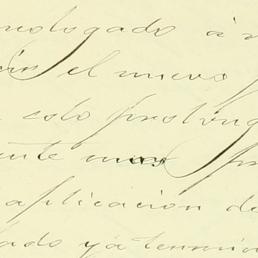 prologado á
el nuevo
solo prolong
ente mas
aplicacion de
ado ya termin